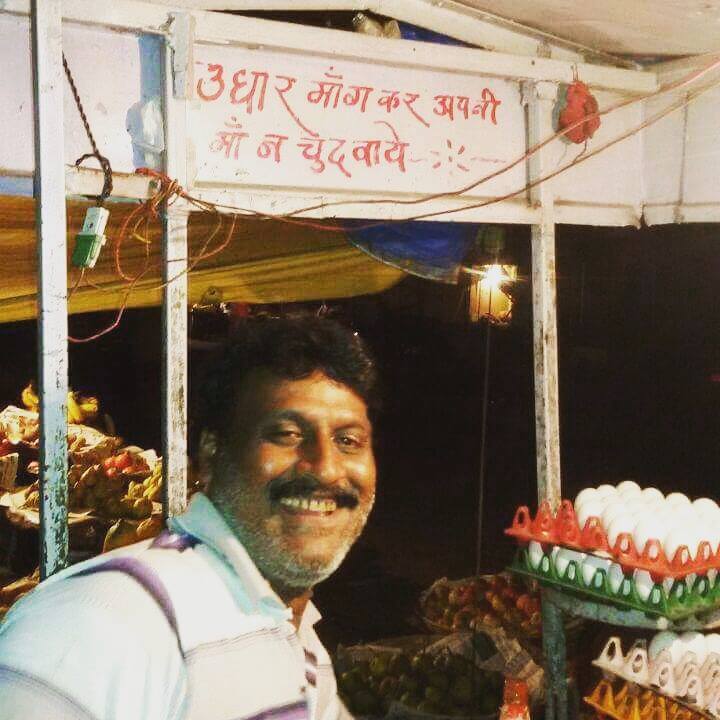 उधार माँग कर अपनी
माँ न चुदवाये